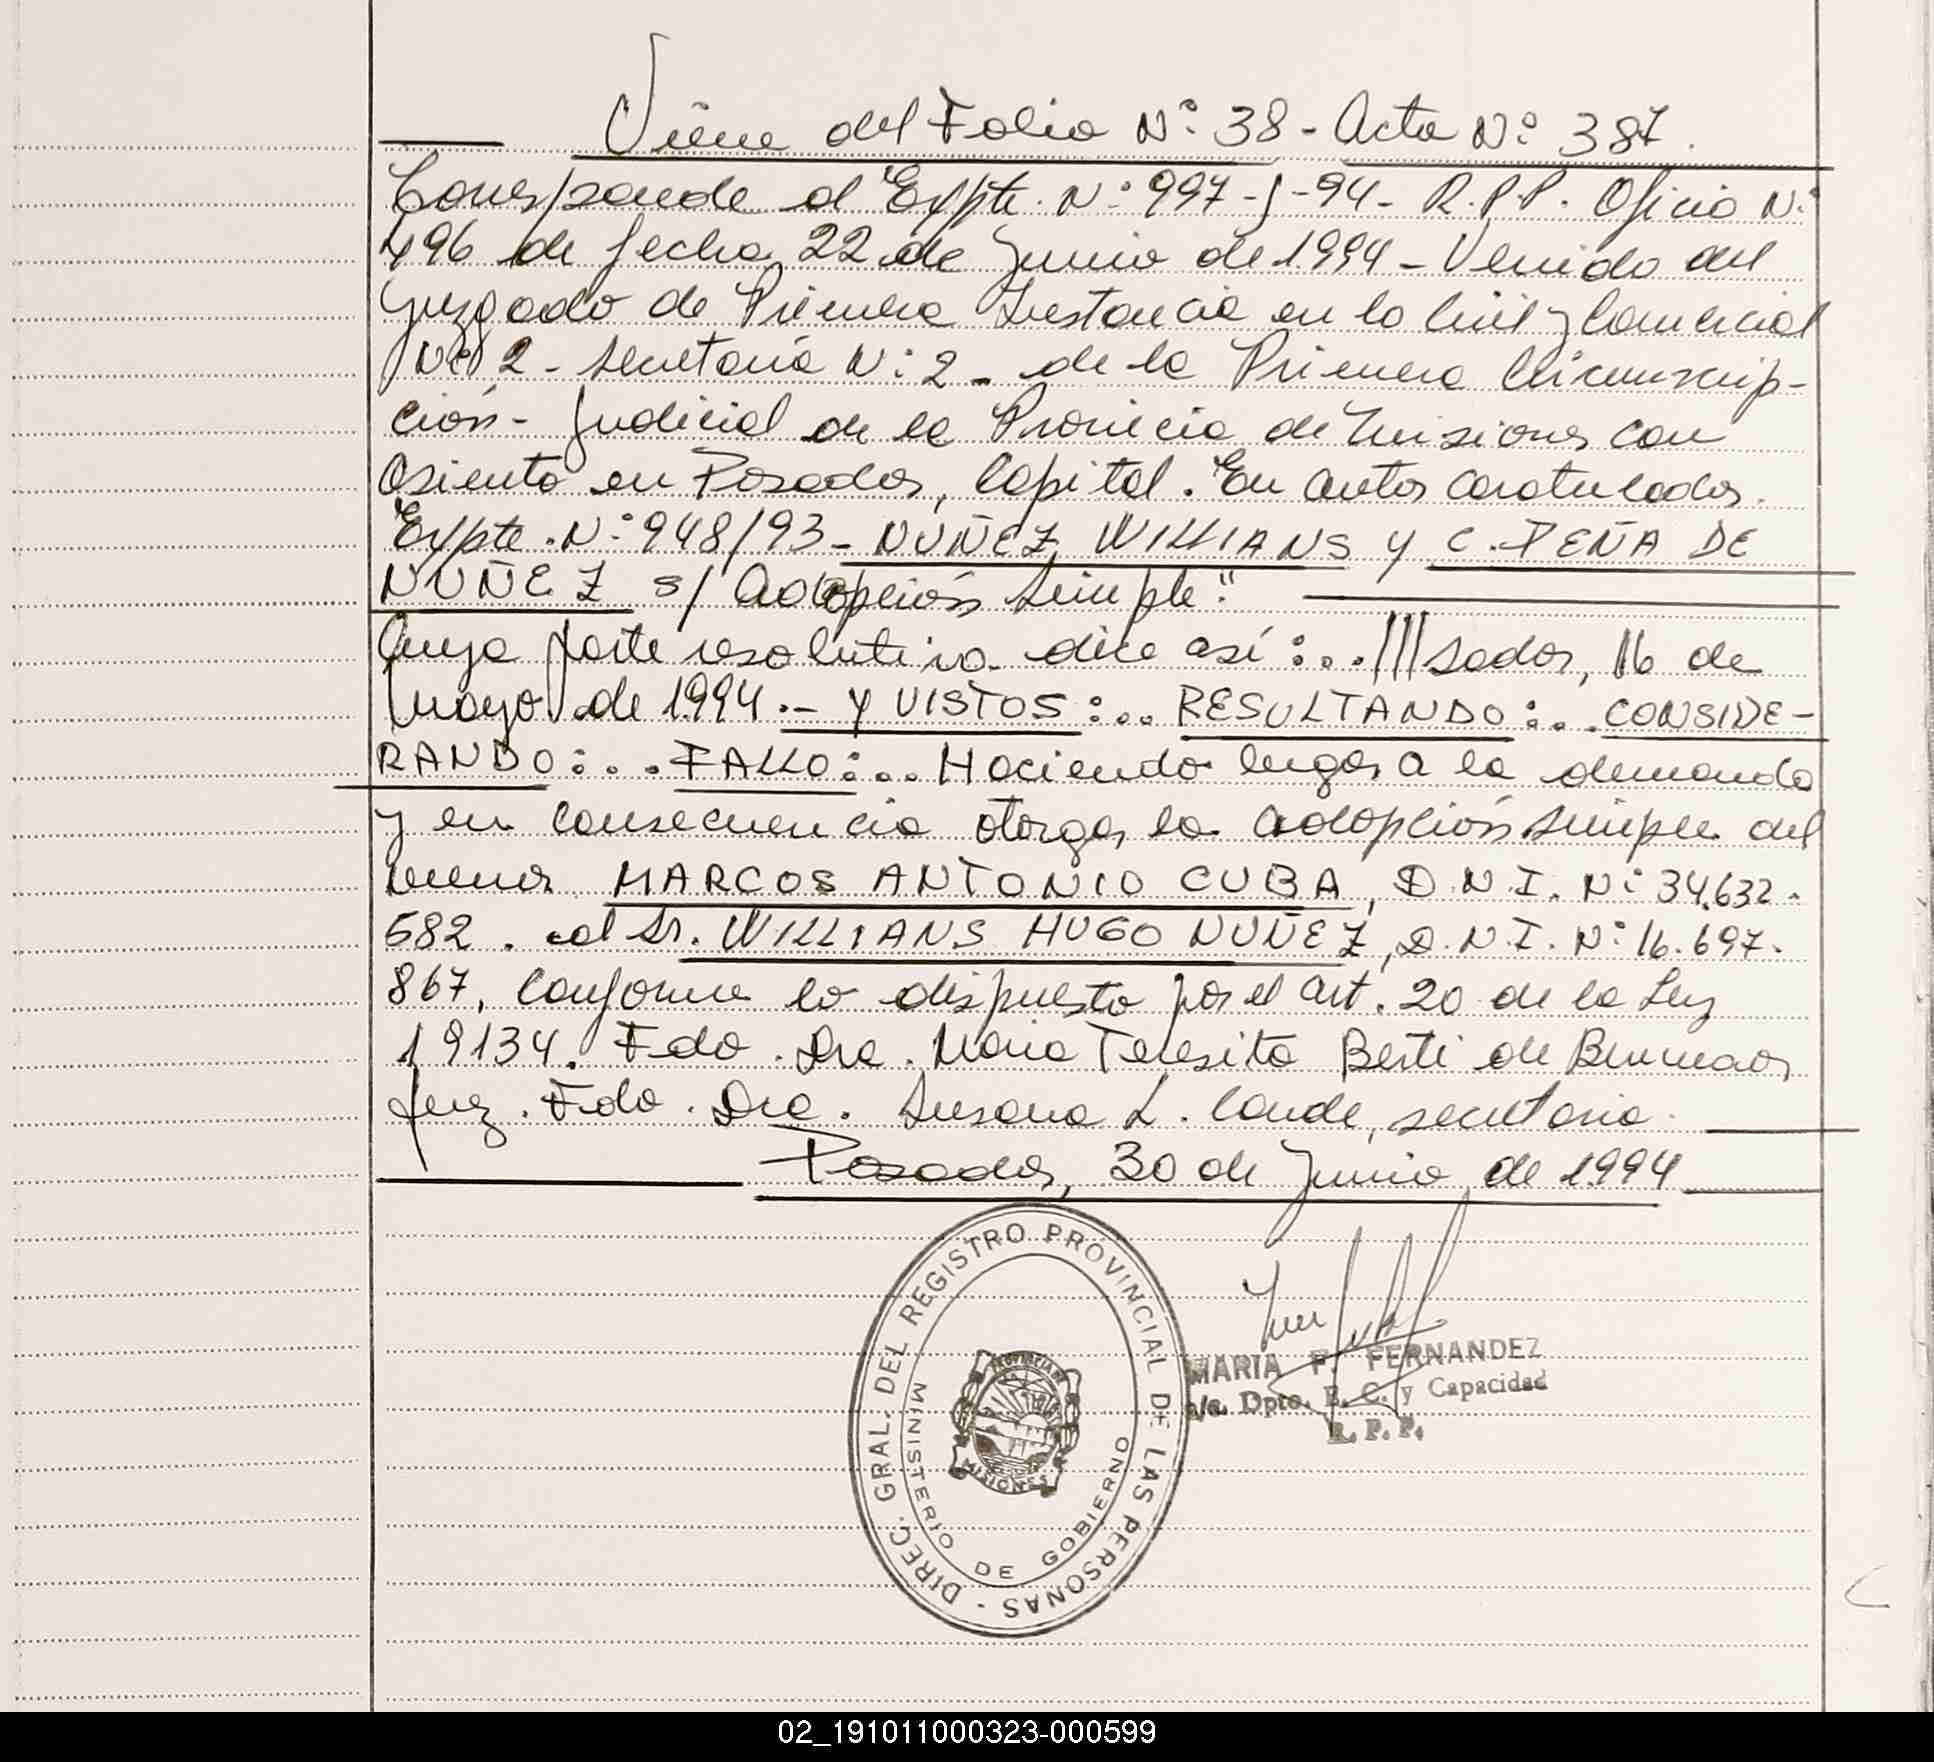 Viene del Folio N° 38 - Acta N° 387.
Corresponde al Expte. N° 997-J-94- R.P.P. Oficio N°
496 de fecha 22 de Junio de 1994 - Venido del
Juzgado de Primera Instancia en lo Civil y Comercial
N° 2 - Secretaría N° 2 - de la Primera Circunscrip-
ción - Judicial de la Provincia de Misiones con
asiento en Posadas, Capital. En autos caratulados.
Expte. N° 948/93 - NUÑEZ, WILLIANS y C. PEÑA DE
NUÑEZ s/ Adopción Simple"
Cuya parte resolutiva dice así:..///sadas, 16 de
mayo de 1994.- Y VISTOS:.. RESULTANDO:.. CONSIDE-
RANDO:... FALLO:... Haciendo lugar a la demanda
y en consecuencia otorgar la adopción simple del
menor MARCOS ANTONIO CUBA, D.N.I. N° 34.632.
582. al Sr. WILLIANS HUGO NUÑEZ, D.N.I. N° 16.697.
867, conforme lo dispuesto por el art. 20 de la Ley
19134. Fdo. Dra. Maria Teresita Berti de
Juez. Fdo. Dra. Susana L. Conde, secretaria.
Posadas, 30 de Junio de 1994
DIREC. GRAL. DEL REGISTRO PROVINCIAL DE LAS PERSONAS -
MINISTERIO DE GOBIERNO
PROVINCIA DE
MISIONES
MARIA F. FERNANDEZ
a/c. Dpto. E. C. y Capacidad
R. P. P.
02_191011000323-000599